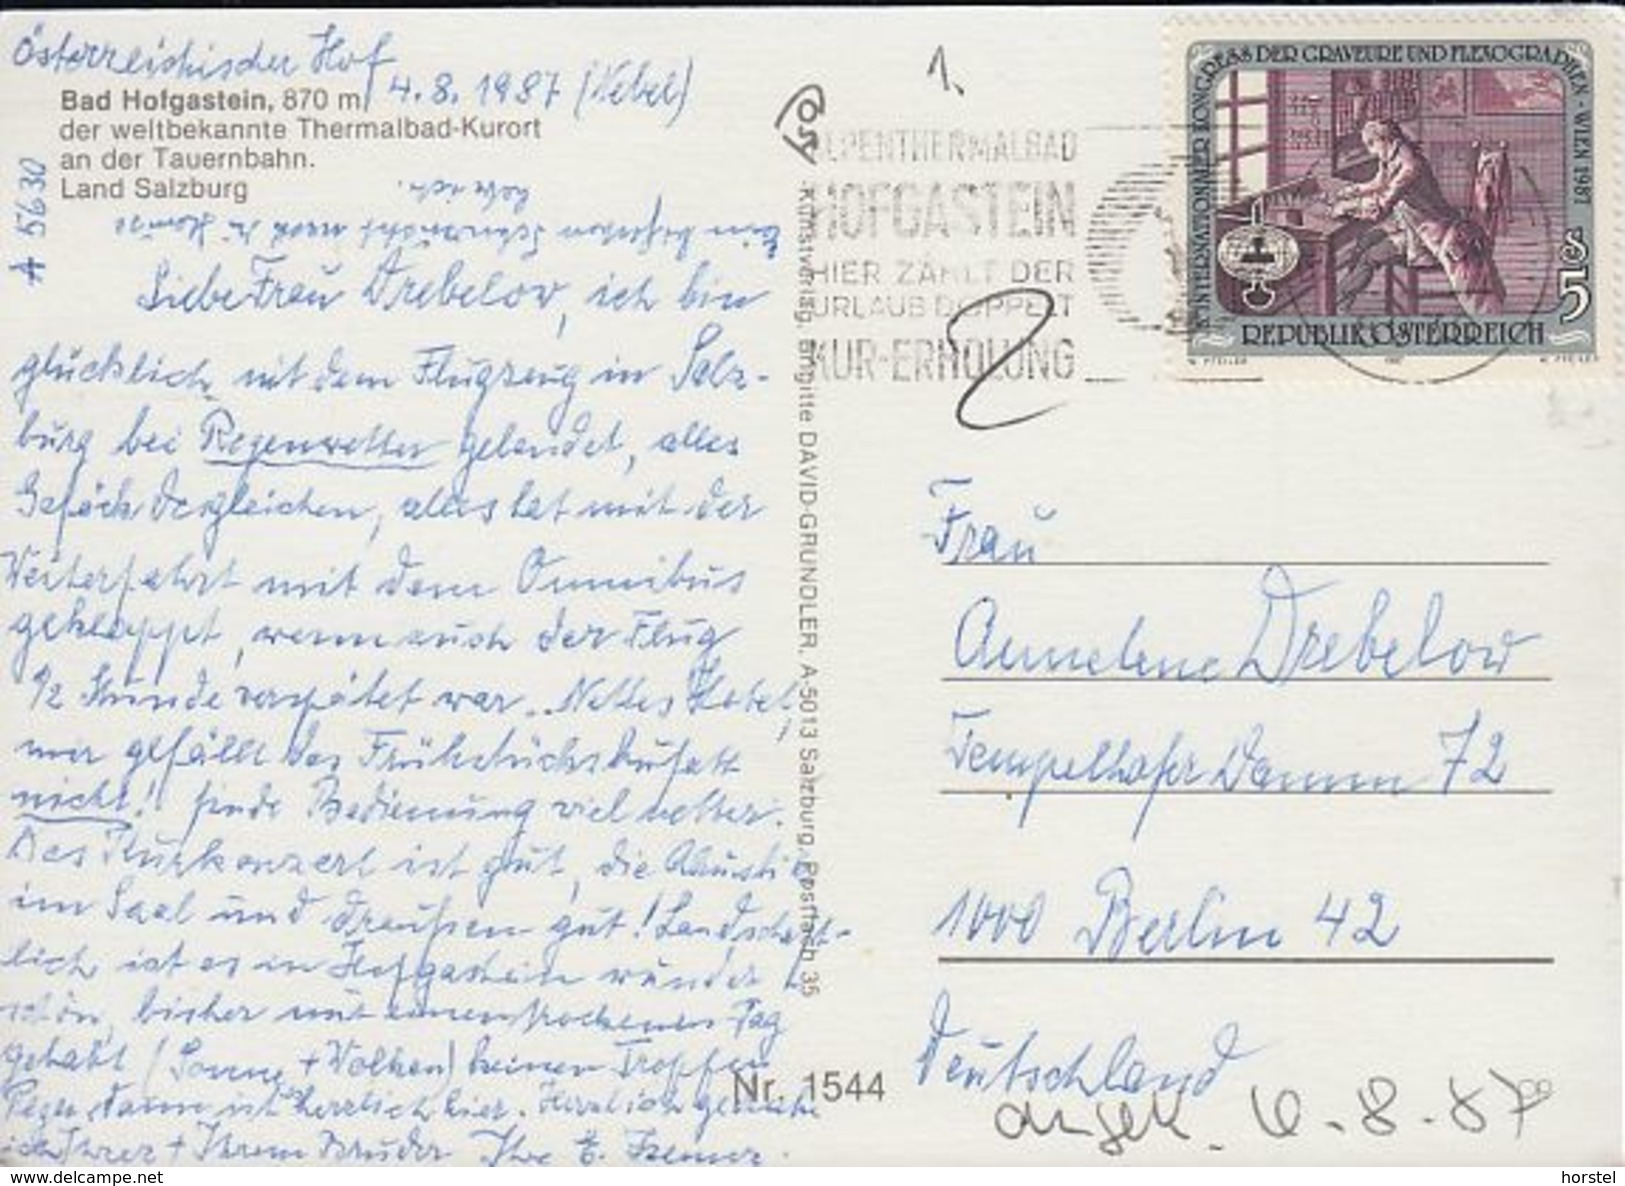 Österreichischer Hof
4.8.1987 (Nebel)
Bad Hofgastein, 870 m
der weltbekannte Thermalbad-Kurort
an der Tauernbahn.
Land Salzburg
A 5630
habe ich.
Liebe Frau Drebelow, ich bin
glücklich mit dem Flugzeug in Salz-
burg bei Regenwetter gelandet, alles
Gepäck desgleichen, alles hat mit der
Weiterfahrt mit dem Omnibus
geklappt, wenn auch der Flug
1/2 Stunde verspätet war. Nettes Hotel,
nur gefällt das Frühstücksbufett
nicht! finde Bedienung viel netter.
Das Kurkonzert ist gut, die Akustik
im Saal und draußen gut! Landschaft-
lich ist es in Hofgastein wunder
schön, bisher nur einen trockenen Tag
gehabt (Sonne + Wolken) keinen Tropfen
Regen, dann ist es herrlich hier. Herzlich grüße
ich Ihnen + Ihrem Bruder Ihre E.
Kunstverlag, Brigitte DAVID-GRÜNDLER, A-5013 Salzburg, Postfach 35
Nr. 1544
1.
ALPENTHERMALBAD
HOFGASTEIN
HIER ZÄHLT DER
URLAUB DOPPELT
KUR-ERHOLUNG
INTERNATIONALER KONGRESS DER GRAVEURE UND FLEXOGRAPHEN · WIEN 1987
5 S
REPUBLIK ÖSTERREICH
W. PFEILER
1987
Frau
Annelene Drebelow
Tempelhofer Damm 72
1000 Berlin 42
Deutschland
angek. 6.8.87
delcampe.net
horstel